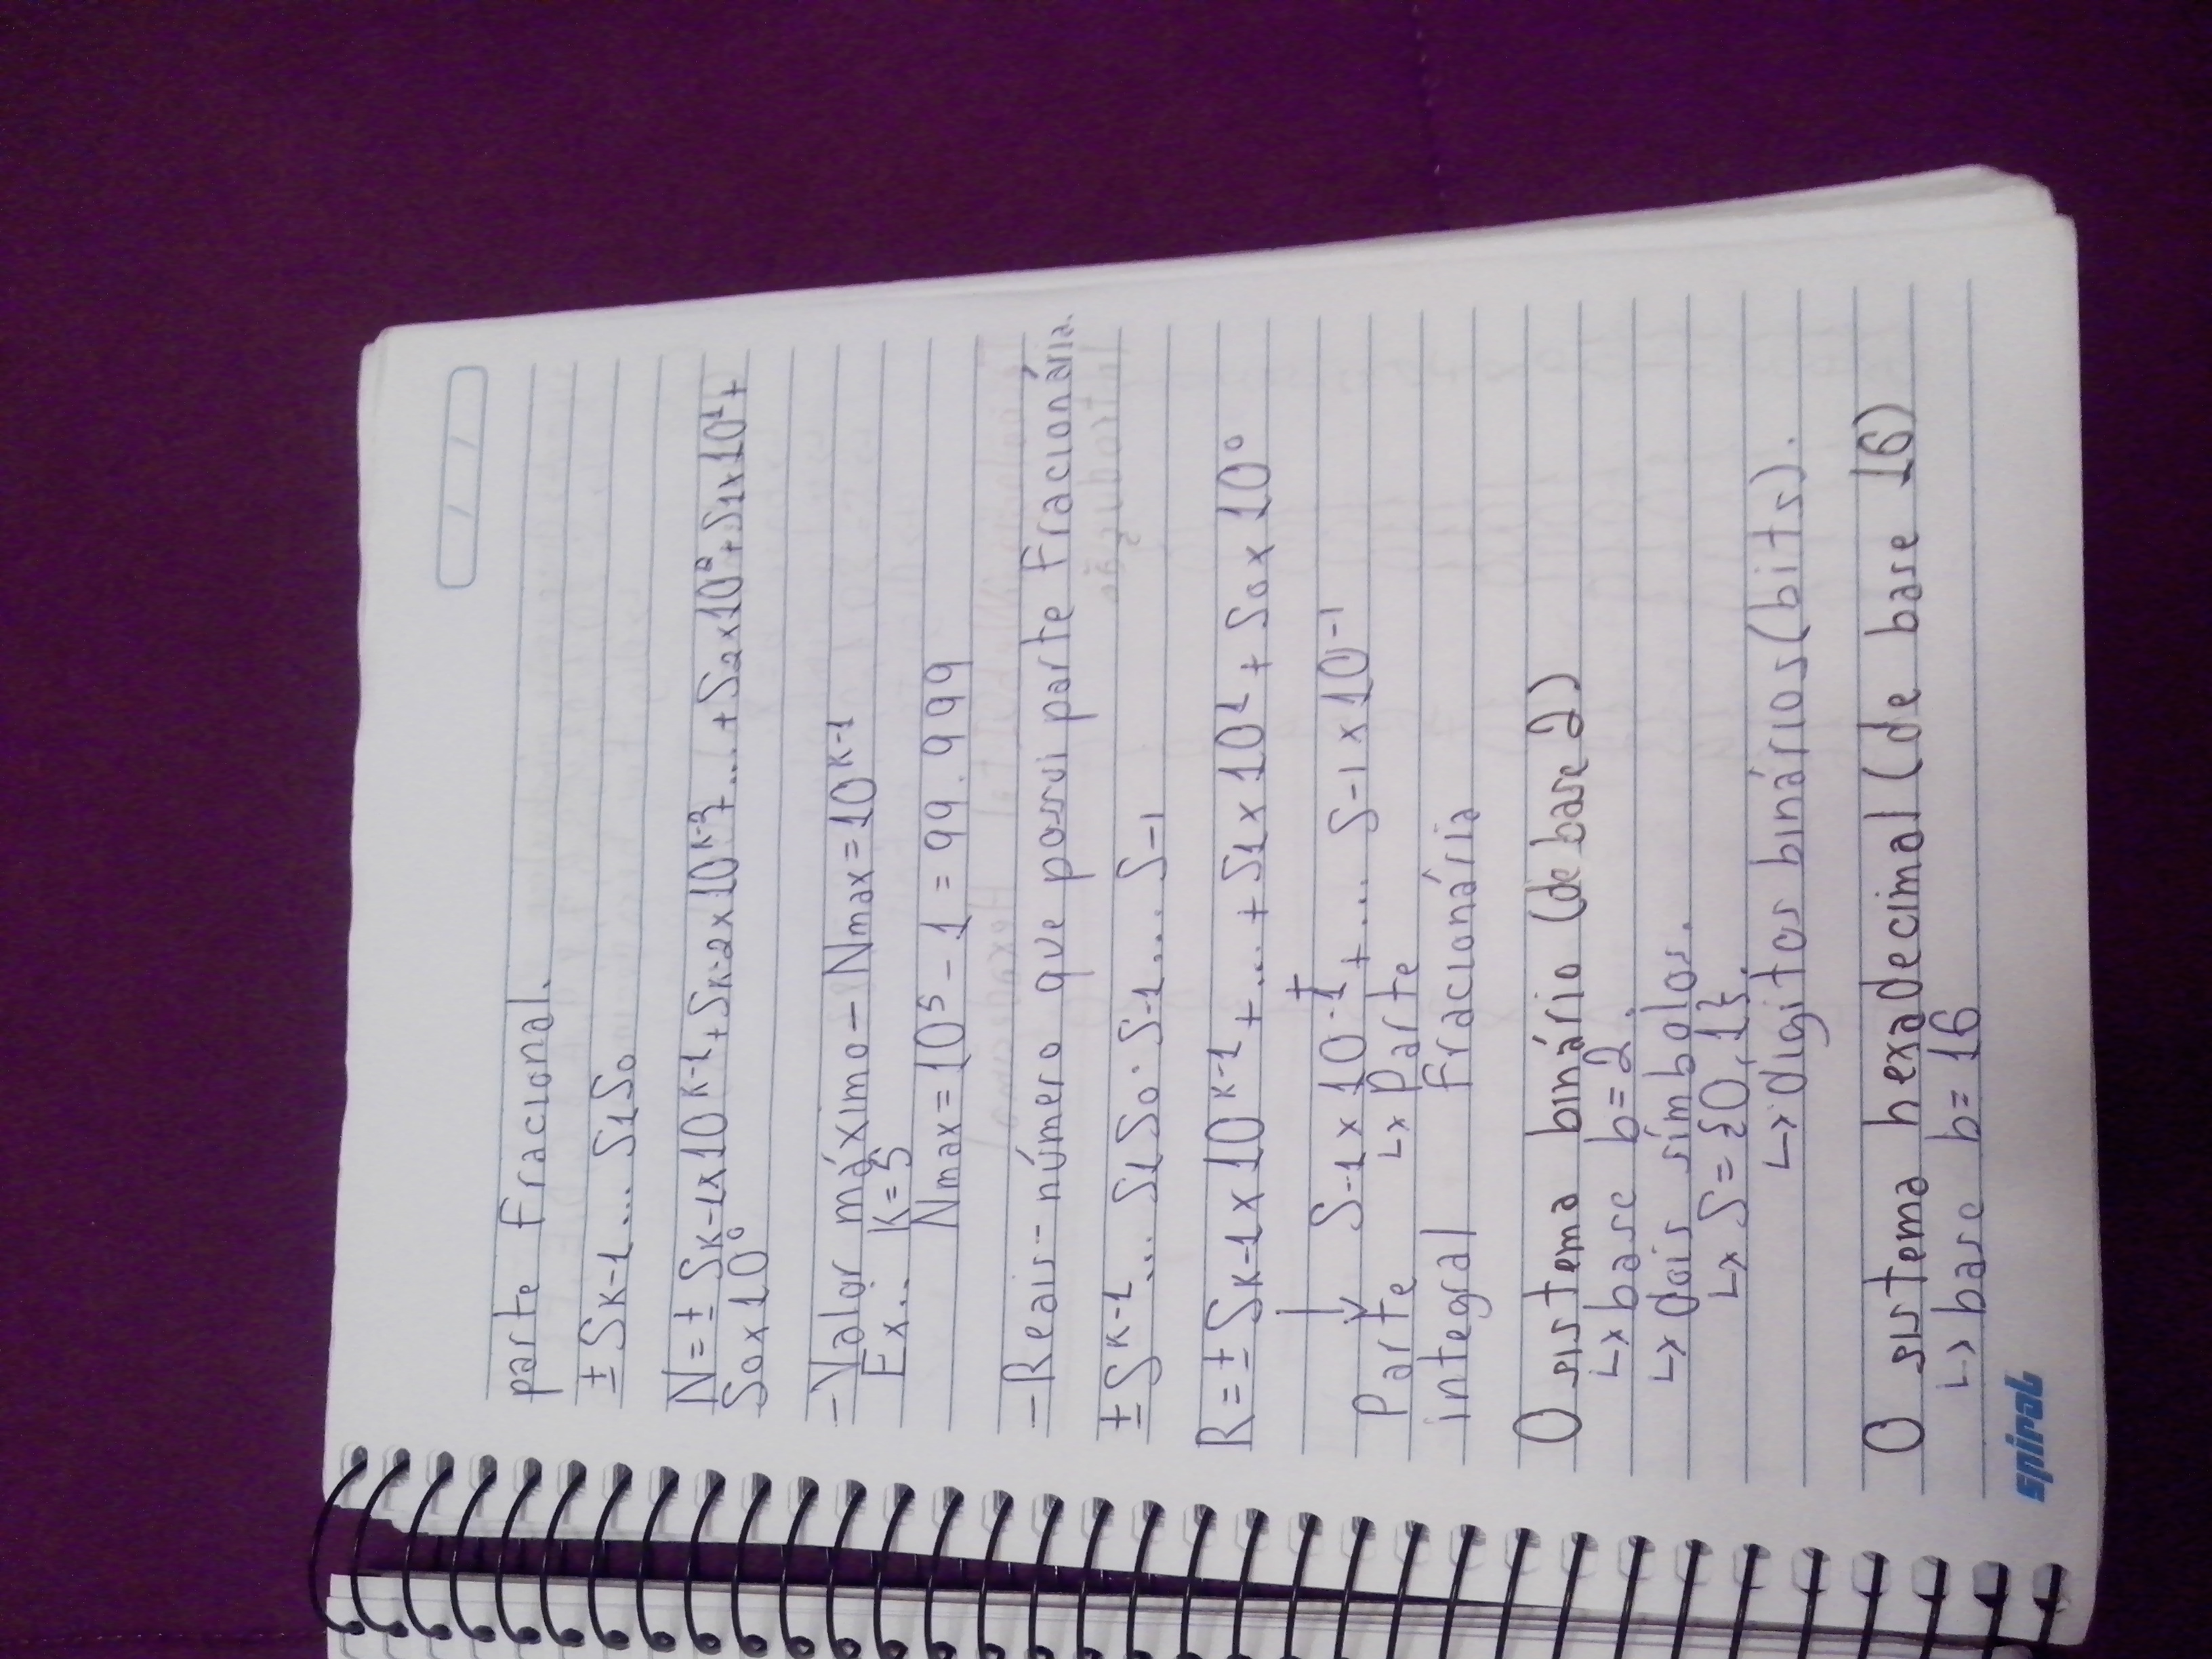 parte fracional.
± SK-1... S1S0
N = ± SK-1x10^K-1 + SK-2x10^K-2 + ... + S2x10² + S1x10¹ +
S0x10⁰
- Valor máximo - Nmax = 10^K-1
Ex.: K=5
Nmax = 10⁵ - 1 = 99.999
- Reais - número que possui parte fracionária.
± S^K-1... S1S0.S-1... S-l
R = ± SK-1 x 10^K-1 + ... + S1x10¹ + S0x10⁰
+
↓ S-1x10^-1 + ... S-l x 10^-l
Parte ↳ Parte
integral fracionária
O sistema binário (de base 2)
↳ base b=2.
↳ dois símbolos.
↳ S={0,1}.
↳ dígitos binários (bits).
O sistema hexadecimal (de base 16)
↳ base b= 16
spiral